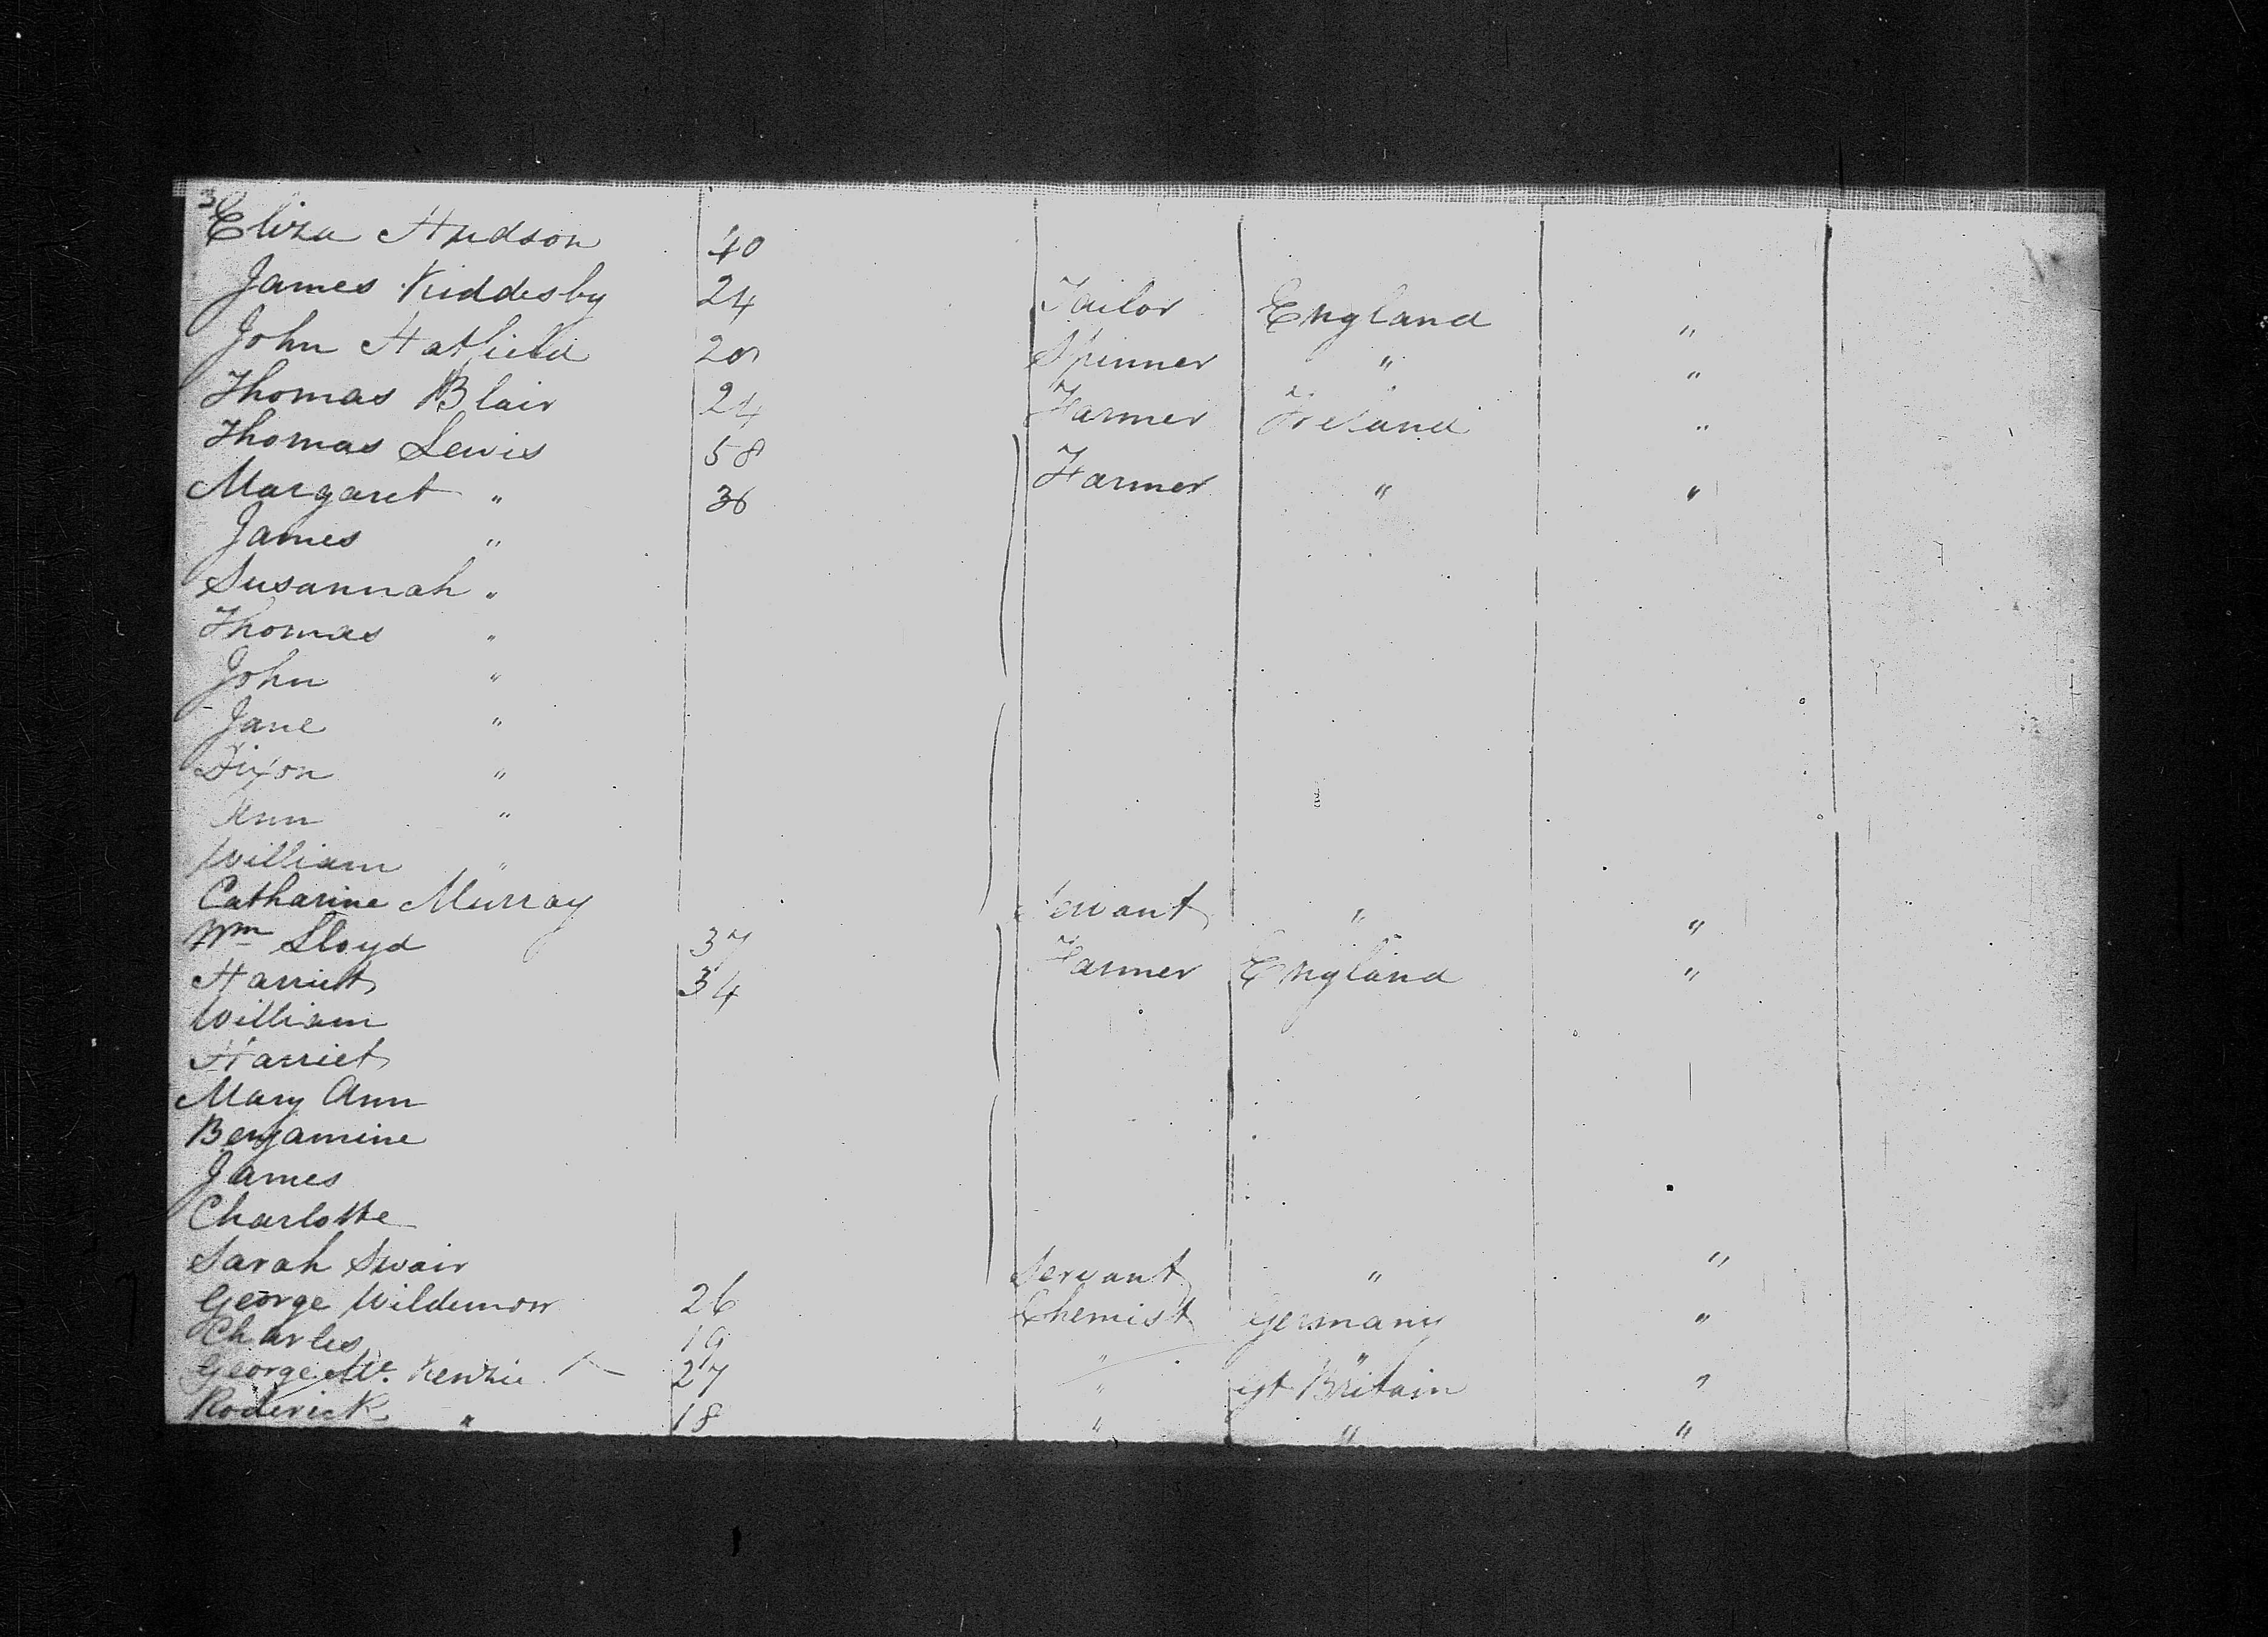 30
Eliza Hudson 40
James Kiddesby 24 Tailor England "
John Hatfield 20 Spinner " "
Thomas Blair 24 Farmer Ireland "
Thomas Lewis 58 Farmer " "
Margaret " 36
James "
Susannah "
Thomas "
John "
Jane "
Dixon "
Ann "
William "
Catharine Murray Servant " "
Wm Lloyd 37 Farmer England "
Harriet 34
William
Harriet
Mary Ann
Benjamine
James
Charlotte
Sarah Swair Servant " "
George 26 Chemist Germany "
Charles 19 " "
George Mc Kenzie 27 " Gt Britain "
Roderick " 18 " " "